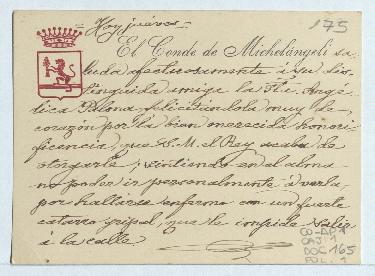 Hoy jueves
175
El Conde de Michelángeli sa-
luda afectuosamente á su dis-
tinguida amiga la Sta. Angé-
lica Paloma felicitándola muy de
corazón por la bien merecida honori-
ficencia, que S. M. el Rey acaba de
otorgarle; sintiendo en el alma
no poder ir personalmente á verla,
por hallarse enfermo con un fuerte
catarro gripal, que le impide salir
á la calle
165